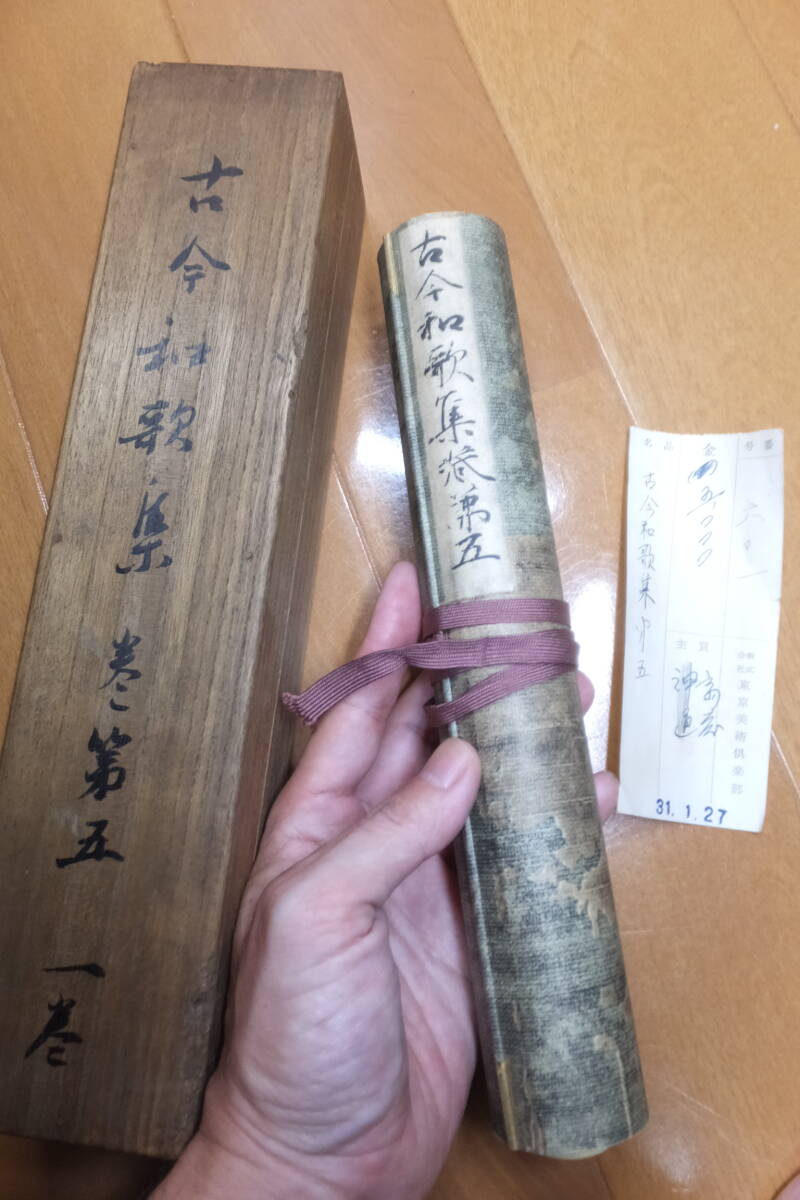 古今和歌集 巻第五 一巻
古今和歌集巻第五
番号
六〇一
金
四五、〇〇〇
品名
古今和歌集第五
買主
株式会社東京美術倶楽部
31.1.27